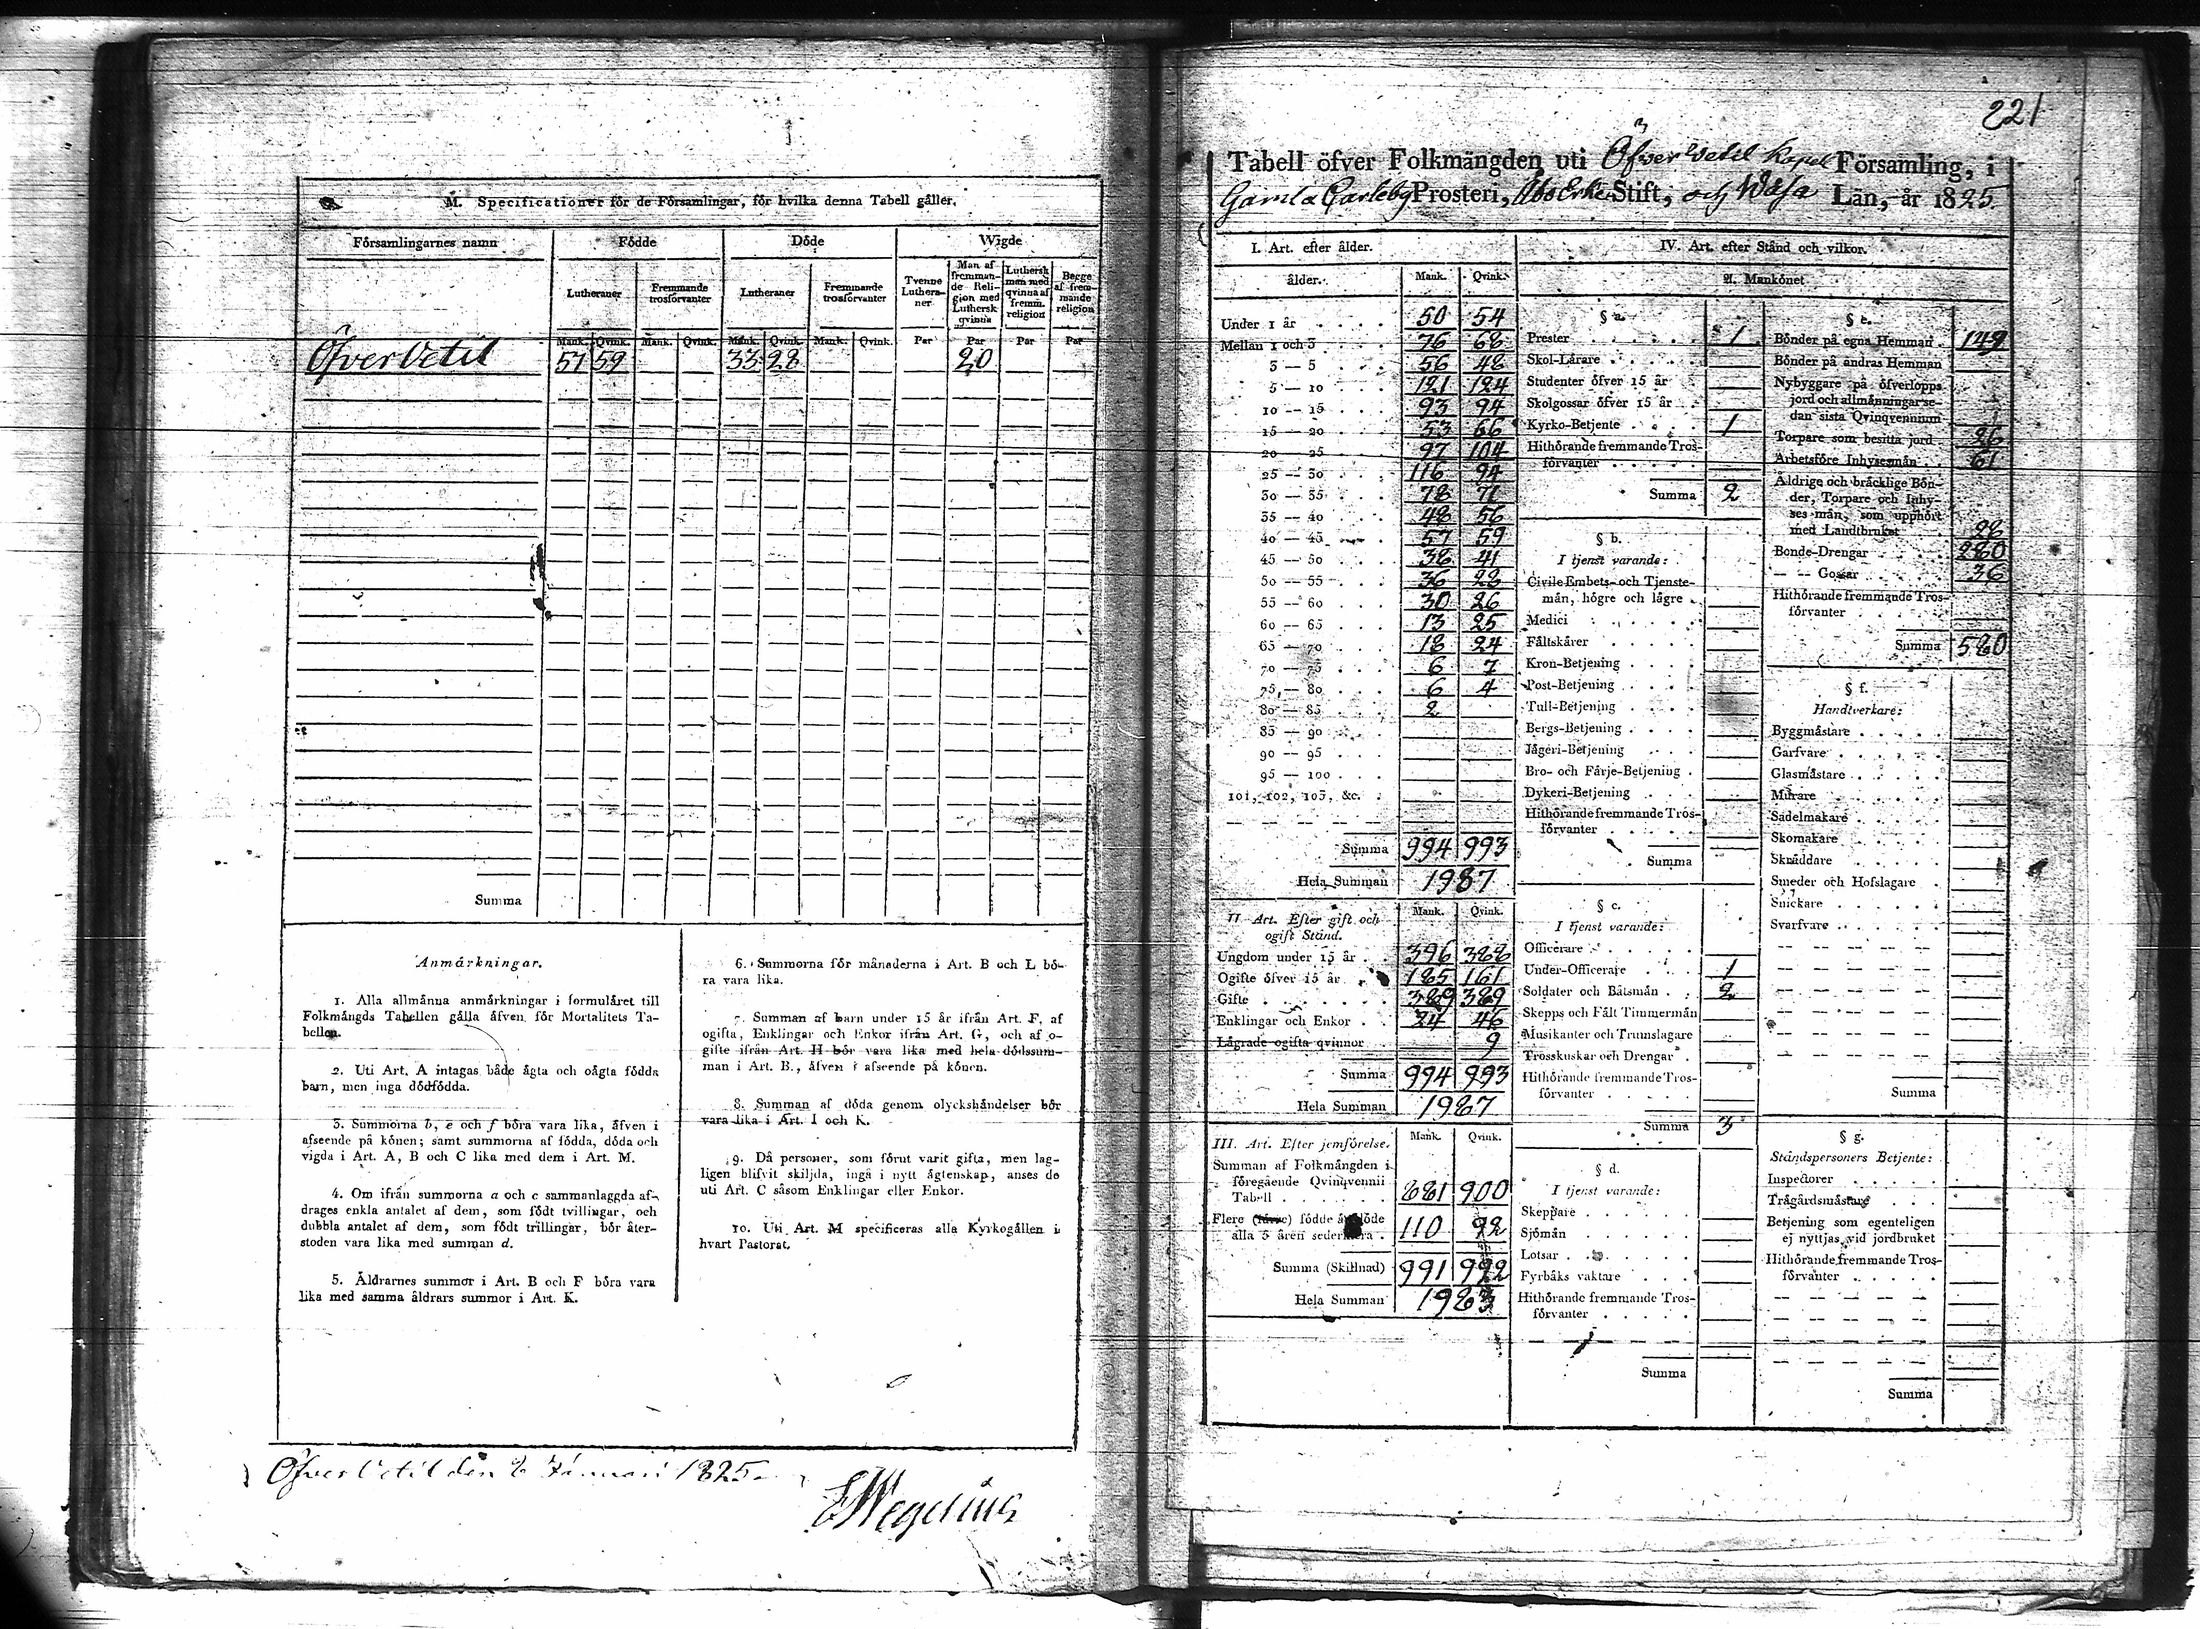 M. Specificationer för de Församlingar, för hvilka denna Tabell gäller.
Församlingarnes namn Födde Döde Wigde
Lutheraner Fremmande trosförvanter Lutheraner Fremmande trosförvanter Tvenne Lutheraner Man af fremmande Religion med Luthersk qvinna Luthersk man med qvinna af fremm. religion Begge af fremmande religion
Mank. Qvink. Mank. Qvink. Mank. Qvink. Mank. Qvink. Par Par Par Par
Öfver Vetil 57 59 33 28 20
Summa
Anmärkningar.
1. Alla allmänna anmärkningar i formuläret till
Folkmängds Tabellen gälla äfven för Mortalitets Ta-
bellen.
2. Uti Art. A intagas både ägta och oägta födda
barn, men inga dödfödda.
3. Summorna b, e och f böra vara lika, äfven i
afseende på könen; samt summorna af födda, döda och
vigda i Art. A, B och C lika med dem i Art. M.
4. Om ifrån summorna a och c sammanlaggda af-
drages enkla antalet af dem, som födt tvillingar, och
dubbla antalet af dem, som födt trillingar, bör åter-
stoden vara lika med summan d.
5. Åldrarnes summor i Art. B och F böra vara
lika med samma åldrars summor i Art. K.
6. Summorna för månaderna i Art. B och L bö-
ra vara lika.
7. Summan af barn under 15 år ifrån Art. F, af
ogifta, Enklingar och Enkor ifrån Art. G, och af o-
gifte ifrån Art. H bör vara lika med hela dödssum-
man i Art. B., äfven i afseende på könen.
8. Summan af döda genom olyckshändelser bör
vara lika i Art. I och K.
9. Då personer, som förut varit gifta, men lag-
ligen blifvit skiljda, ingå i nytt ägtenskap, anses de
uti Art. C såsom Enklingar eller Enkor.
10. Uti Art. M specificeras alla Kyrkogällen i
hvart Pastorat.
Öfver Vetil den 8 Januari 1825.
E Wegelius
221
Tabell öfver Folkmängden uti Öfver Vetil Kapell Församling, i
Gamla Carleby Prosteri, Åbo Erke Stift, och Wasa Län, år 1825.
I. Art. efter ålder.
ålder. Mank. Qvink.
Under 1 år 50 54
Mellan 1 och 3 76 68
3 — 5 56 48
5 — 10 121 124
10 — 15 93 94
15 — 20 53 66
20 — 25 97 104
25 — 30 116 94
30 — 35 78 71
35 — 40 48 56
40 — 45 57 59
45 — 50 38 41
50 — 55 36 28
55 — 60 30 26
60 — 65 13 25
65 — 70 18 24
70 — 75 6 7
75 — 80 6 4
80 — 85 2
85 — 90
90 — 95
95 — 100
101, 102, 103, &c.
Summa 994 993
Hela Summan 1987
II. Art. Efter gift och
ogift Stånd. Mank. Qvink.
Ungdom under 15 år 396 388
Ogifte öfver 15 år 185 161
Gifte 389 389
Enklingar och Enkor 24 46
Lägrade ogifta qvinnor 9
Summa 994 993
Hela Summan 1987
III. Art. Efter jemförelse. Mank. Qvink.
Summan af Folkmängden i
föregående Qvinqvennii
Tabell 881 900
Flere (färre) födde än döde
alla 5 åren sedermera 110 92
Summa (Skillnad) 991 992
Hela Summan 1983
IV. Art. efter Stånd och vilkor.
A. Mankönet
§ a.
Prester 1
Skol-Lärare
Studenter öfver 15 år
Skolgossar öfver 15 år
Kyrko-Betjente 1
Hithörande fremmande Tros-
förvanter
Summa 2
§ b.
I tjenst varande:
Civile Embets- och Tjenste-
män, högre och lägre
Medici
Fältskärer
Kron-Betjening
Post-Betjening
Tull-Betjening
Bergs-Betjening
Jägeri-Betjening
Bro- och Färje-Betjening
Dykeri-Betjening
Hithörande fremmande Tros-
förvanter
Summa
§ c.
I tjenst varande:
Officerare
Under-Officerare 1
Soldater och Båtsmän 2
Skepps och Fält Timmermän
Musikanter och Trumslagare
Trosskuskar och Drengar
Hithörande fremmande Tros-
förvanter
Summa 3
§ d.
I tjenst varande:
Skeppare
Sjömän
Lotsar
Fyrbåks vaktare
Hithörande fremmande Tros-
förvanter
Summa
§ e.
Bönder på egna Hemman 149
Bönder på andras Hemman
Nybyggare på öfverlopps
jord och allmänningar se-
dan sista Qvinqvennium
Torpare som besitta jord 26
Arbetsföre Inhysesmän 61
Åldrige och bräcklige Bön-
der, Torpare och Inhy-
ses män, som upphört
med Landtbruket 28
Bonde-Drengar 280
— — Gossar 36
Hithörande fremmande Tros-
förvanter
Summa 580
§ f.
Handtverkare:
Byggmästare
Garfvare
Glasmästare
Murare
Sadelmakare
Skomakare
Skräddare
Smeder och Hofslagare
Snickare
Svarfvare
Summa
§ g.
Ståndspersoners Betjente:
Inspector
Trägårdsmästare
Betjening som egenteligen
ej nyttjas vid jordbruket
Hithörande fremmande Tros-
förvanter
Summa